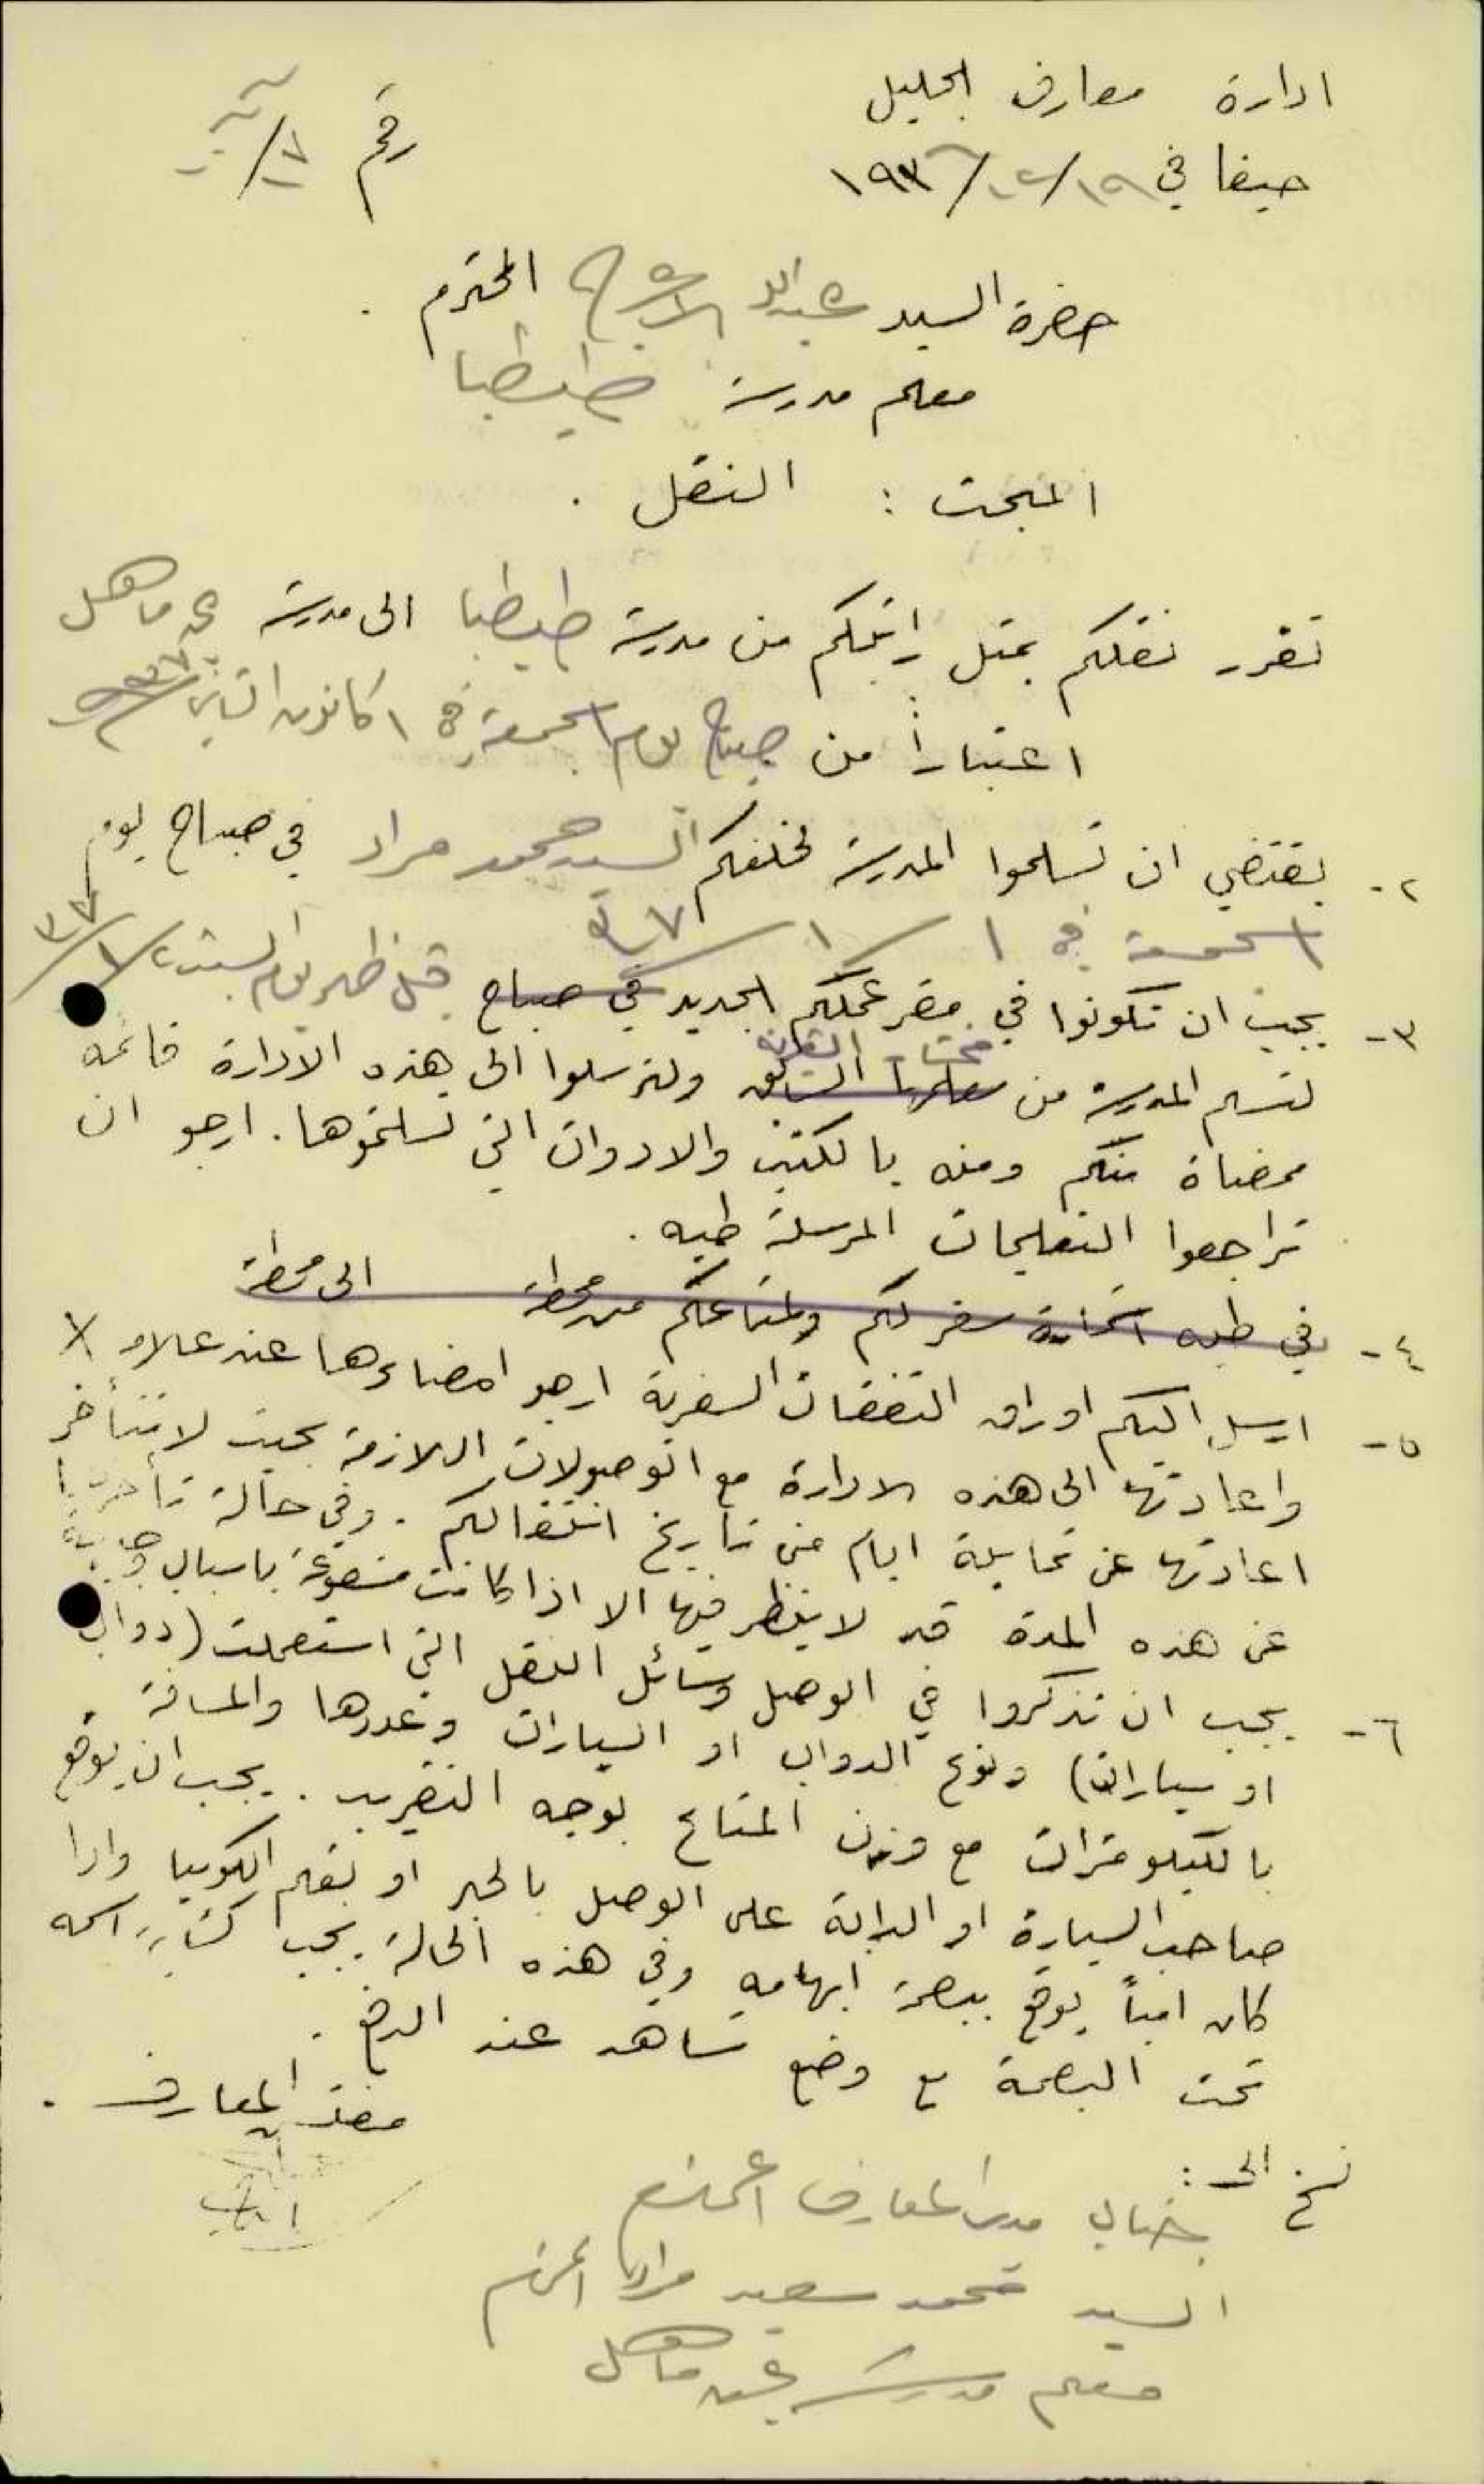 ادارة معارف الجليل
حيفا في ١٩/١٢/١٩٣٦
رقم
حضرة السيد عبدالله المحترم .
معلم مدرسة طيطبا
المبحث : النقل .
تقرر نقلكم بمثل راتبكم من مدرسة طيطبا الى مدرسة عين ماهل
اعتباراً من صباح يوم الجمعة في ١ كانون الثاني ٩٣٧
٢- يقتضي ان تسلموا المدرسة لخلفكم السيد محمد مراد في صباح يوم
الجمعة في ١/١/٩٣٧
٣- يجب ان تكونوا في مقر عملكم الجديد في صباح قبل ظهر يوم السبت ٢/١/٣٧
لتسلم المدرسة من معلمها السابق مختار القرية ولترسلوا الى هذه الادارة قائمة
ممضاة منكم ومنه بالكتب والادوات التي تسلمتموها . ارجو ان
تراجعوا التعليمات المرسلة طيه .
٤- في طيه استمارة سفر لكم ولمتاعكم من محطة الى محطة
٥- ارسل اليكم اوراق النفقات السفرية ارجو امضاءها عند علامة X
واعادتها الى هذه الادارة مع الوصولات اللازمة بحيث لا تتأخر
اعادتها عن ثمانية ايام من تاريخ انتقالكم . وفي حالة تأخرها
عن هذه المدة قد لا ينظر فيها الا اذا كانت مشفوعة باسباب وجيهة
٦- يجب ان تذكروا في الوصل وسائل النقل التي استعملت (دواب
او سيارات) ونوع الدواب او السيارات وعددها والمسافة
بالكيلومترات مع وزن المتاع بوجه التقريب . يجب ان يوقع
صاحب السيارة او الدابة على الوصل بالحبر او بقلم الكوبيا واذا
كان امياً يوقع ببصمة ابهامه وفي هذه الحالة يجب كتابة اسمه
تحت البصمة مع وضع شاهد عند الدفع .
مفتش المعارف .
نسخ الى :
جناب مدير المعارف المحترم
السيد محمد سعيد مراد المحترم
معلم مدرسة عين ماهل